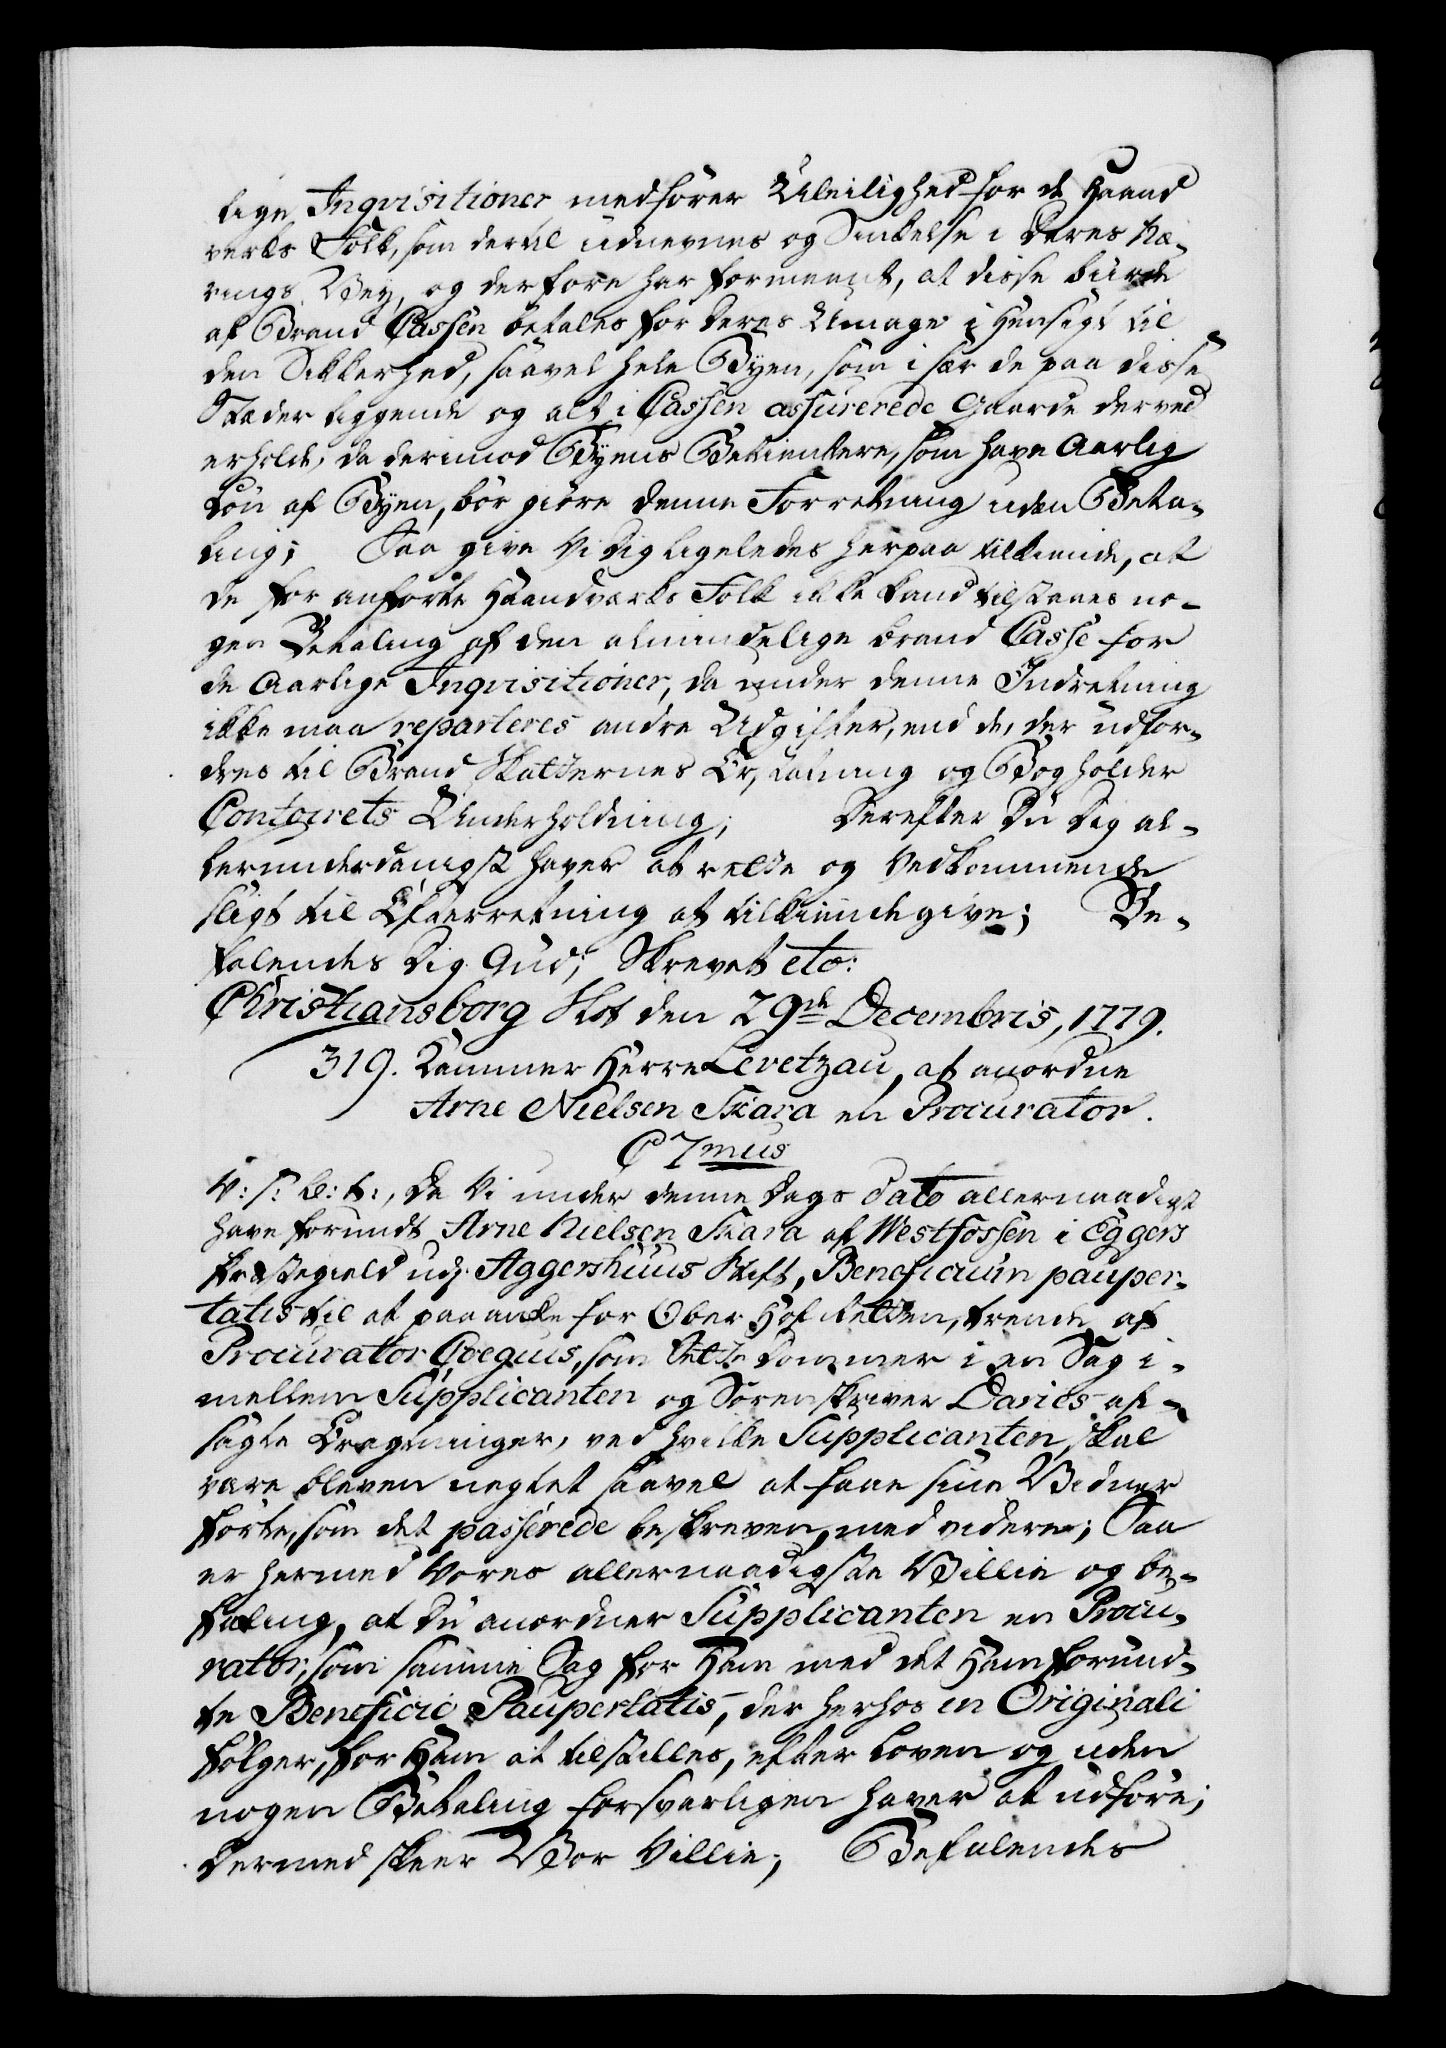 lige Inqvisitioner medfører Uleilighed for de Haand
verks Folk, som dertil udnevnes og Sinkelse i deres Næ-
rings Vey, og derfore har formeent, at disse burde
af Brand Cassen betales for deres Umage i Hensigt til
den Sikkerhed, saavel hele Byen, som i sær de paa disse
Stæder liggende og alt i Cassen assurerede Gaarde derved
erholde, da derimod Byens Betientere, som have Aarlig
Løn af Byen, bør giøre denne Forretning uden Beta-
ling; Saa give Vi Dig ligeledes herpaa tilkiende, at
de for anførte Haandværks Folk ikke kand tilstaaes no-
gen Betaling af den almindelige Brand Casse for
de Aarlige Inqvisitioner, da under denne Indretning
ikke maa reparteres andre Udgifter, end de, der udfor-
dres til Brand Skadernes Erstatning og Bogholder
Contoirets Underholdning; Derefter Du Dig al-
lerunderdanigst haver at rette og Vedkommende
sligt til Efterretning at tilkiendegive; Be-
falendes Dig Gud; Skrevet etc:
Christiansborg Slot den 29de Decembris, 1779.
319. Kammer Herre Levetzau, at anordne
Arne Nielsen Skara en Procurator.
C 7mus
V: S: G: T:, Da Vi under denne Dags Dato allernaadigst
have forundt Arne Nielsen Skara af Westfossen i Eggers
Præstegield udj Aggershuus Stift, Beneficium pauper-
tatis til at paaanke for Ober Hof Retten, trende af
Procurator Coegius, som Sætte Dommer i en Sag i-
mellem Supplicanten og Sorenskriver Daries af-
sagte Eragninger, ved hvilke Supplicanten skal
være bleven negtet saavel at faae sine Vidner
førte, som det passerede beskreven, med videre; Saa
er hermed Vores allernaadigste Villie og be-
faling, at Du anordner Supplicanten en Procu-
rator, som samme Sag for Ham med det Ham forund-
te Beneficio Paupertatis, der herhos in Originali
følger, for Ham at tilstilles, efter Loven og uden
nogen Betaling forsvarligen haver at udføre;
Dermed skeer Vor Villie; Befalendes